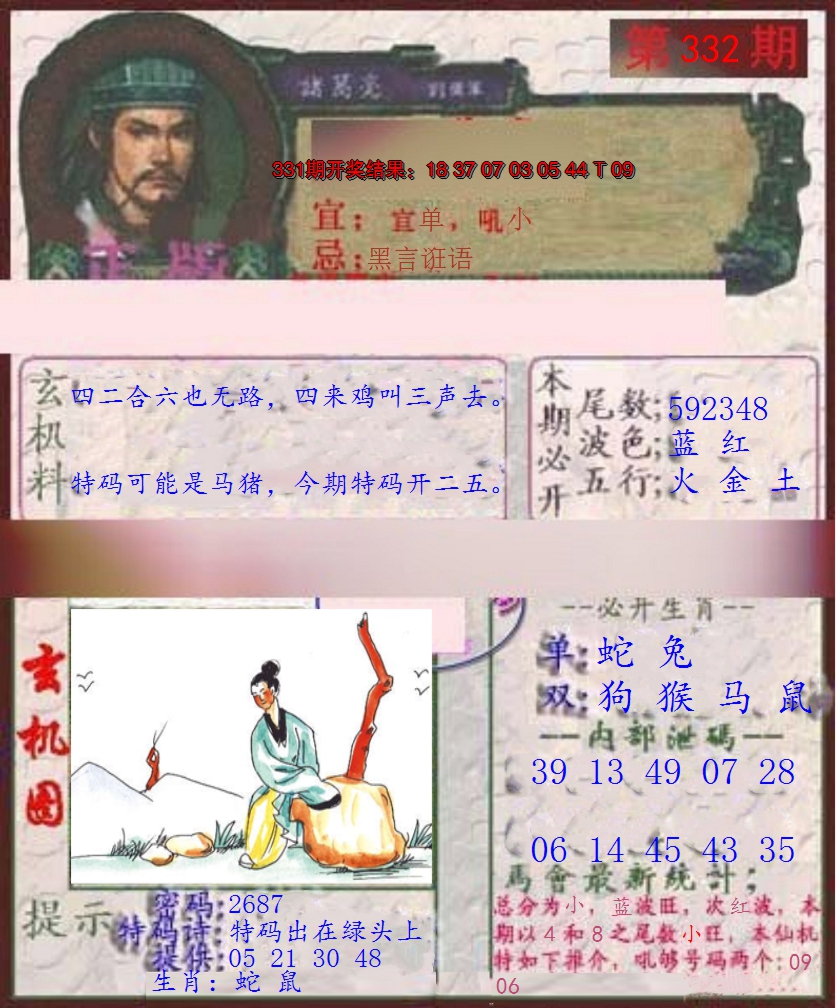 第 332 期
諸葛亮
331期开奖结果：18 37 07 03 05 44 T 09
宜：宜单，吼小
忌：黑言诳语
正版
玄机料
四二合六也无路，四来鸡叫三声去。
特码可能是马猪，今期特码开二五。
本期必开
尾数;592348
波色;蓝 红
五行;火 金 土
玄机图
--必开生肖--
单:蛇 兔
双:狗 猴 马 鼠
一内部泄碼一
39 13 49 07 28
06 14 45 43 35
馬會最新統計;
总分为小，蓝波旺，次红波，本
期以4和8之尾数小旺，本仙机
特如下推介，吼够号码两个:09
06
提示
密码:2687
特码诗:特码出在绿头上
提供:05 21 30 48
生肖：蛇 鼠